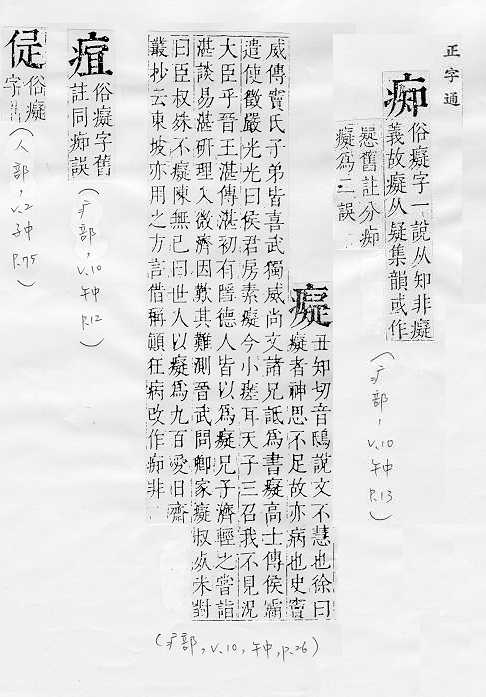 正字通
痴
俗癡字一說从知非癡
義故癡从疑集韻或作
舊註分痴
癡爲二誤
(疒部, V.10 午中 P.13)
癡
丑知切音鴟說文不慧也徐曰
癡者神思不足故亦病也史竇
威傳竇氏子弟皆喜武獨威尚文諸兄詆爲書癡高士傳侯霸
遣使徵嚴光光曰侯君房素癡今小瘥耳天子三召我不見況
大臣乎晉王湛傳湛初有隱德人皆以爲癡兄子濟輕之嘗詣
湛談易湛硏理入微濟因歎其難測晉武問卿家癡叔死未對
曰臣叔殊不癡陳無已曰世人以癡爲九百愛旧齋
叢抄云東坡亦用之方言借稱顚狂病改作痴非
(疒部, V.10, 午中, P.26)
疽
俗癡字舊
註同痴誤
(疒部, V.10 午中 P.12)
俗癡
字
(人部, V.2 子中 P.75)